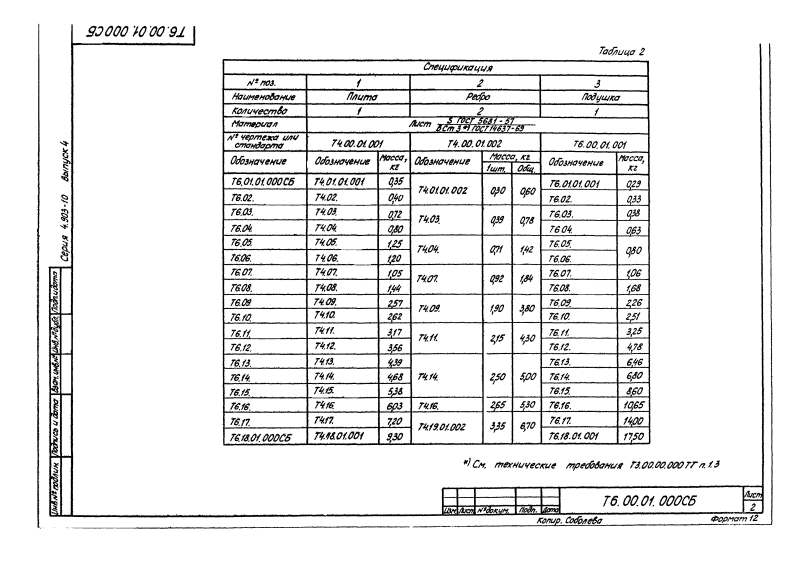 Т6.00.01.000СБ
Таблица 2
Спецификация
№ поз. 1 2 3
Наименование Плита Ребро Подушка
Количество 1 2 1
Материал Лист S ГОСТ 5681-57 / ВСт 3 *) ГОСТ 14637-69
№ чертежа или стандарта Т4.00.01.001 Т4.00.01.002 Т6.00.01.001
Обозначение Обозначение Масса, кг Обозначение Масса, кг Обозначение Масса, кг
1шт. Общ.
Т6.01.01.000СБ Т4.01.01.001 0,35 Т4.01.01.002 0,30 0,60 Т6.01.01.001 0,29
Т6.02. Т4.02. 0,40 Т6.02. 0,33
Т6.03. Т4.03. 0,72 Т4.03. 0,39 0,78 Т6.03. 0,38
Т6.04. Т4.04. 0,80 Т6.04. 0,63
Т6.05. Т4.05. 1,25 Т4.04. 0,71 1,42 Т6.05. 0,80
Т6.06. Т4.06. 1,20 Т6.06.
Т6.07. Т4.07. 1,05 Т4.07. 0,92 1,84 Т6.07. 1,06
Т6.08. Т4.08. 1,44 Т6.08. 1,68
Т6.09 Т4.09. 2,57 Т4.09. 1,90 3,80 Т6.09. 2,26
Т6.10. Т4.10. 2,62 Т6.10. 2,51
Т6.11. Т4.11. 3,17 Т4.11. 2,15 4,30 Т6.11. 3,25
Т6.12. Т4.12. 3,56 Т6.12. 4,78
Т6.13. Т4.13. 4,39 Т4.14. 2,50 5,00 Т6.13. 6,46
Т6.14. Т4.14. 4,68 Т6.14. 6,80
Т6.15. Т4.15. 5,38 Т6.15. 8,60
Т6.16. Т4.16. 6,03 Т4.16. 2,65 5,30 Т6.16. 10,65
Т6.17. Т4.17. 7,20 Т4.19.01.002 3,35 6,70 Т6.17. 14,00
Т6.18.01.000СБ Т4.18.01.001 9,30 Т6.18.01.001 17,50
*) См. технические требования Т3.00.00.000 ТТ п. 1.3
Серия 4.903-10 Выпуск 4
Инв.№ подлин. Подпись и дата Взам. инв.№ Инв.№ дубл. Подп. и дата
Изм. Лист № докум. Подп. Дата
Т6.00.01.000СБ
Лист
2
Копир. Соболева
Формат 12